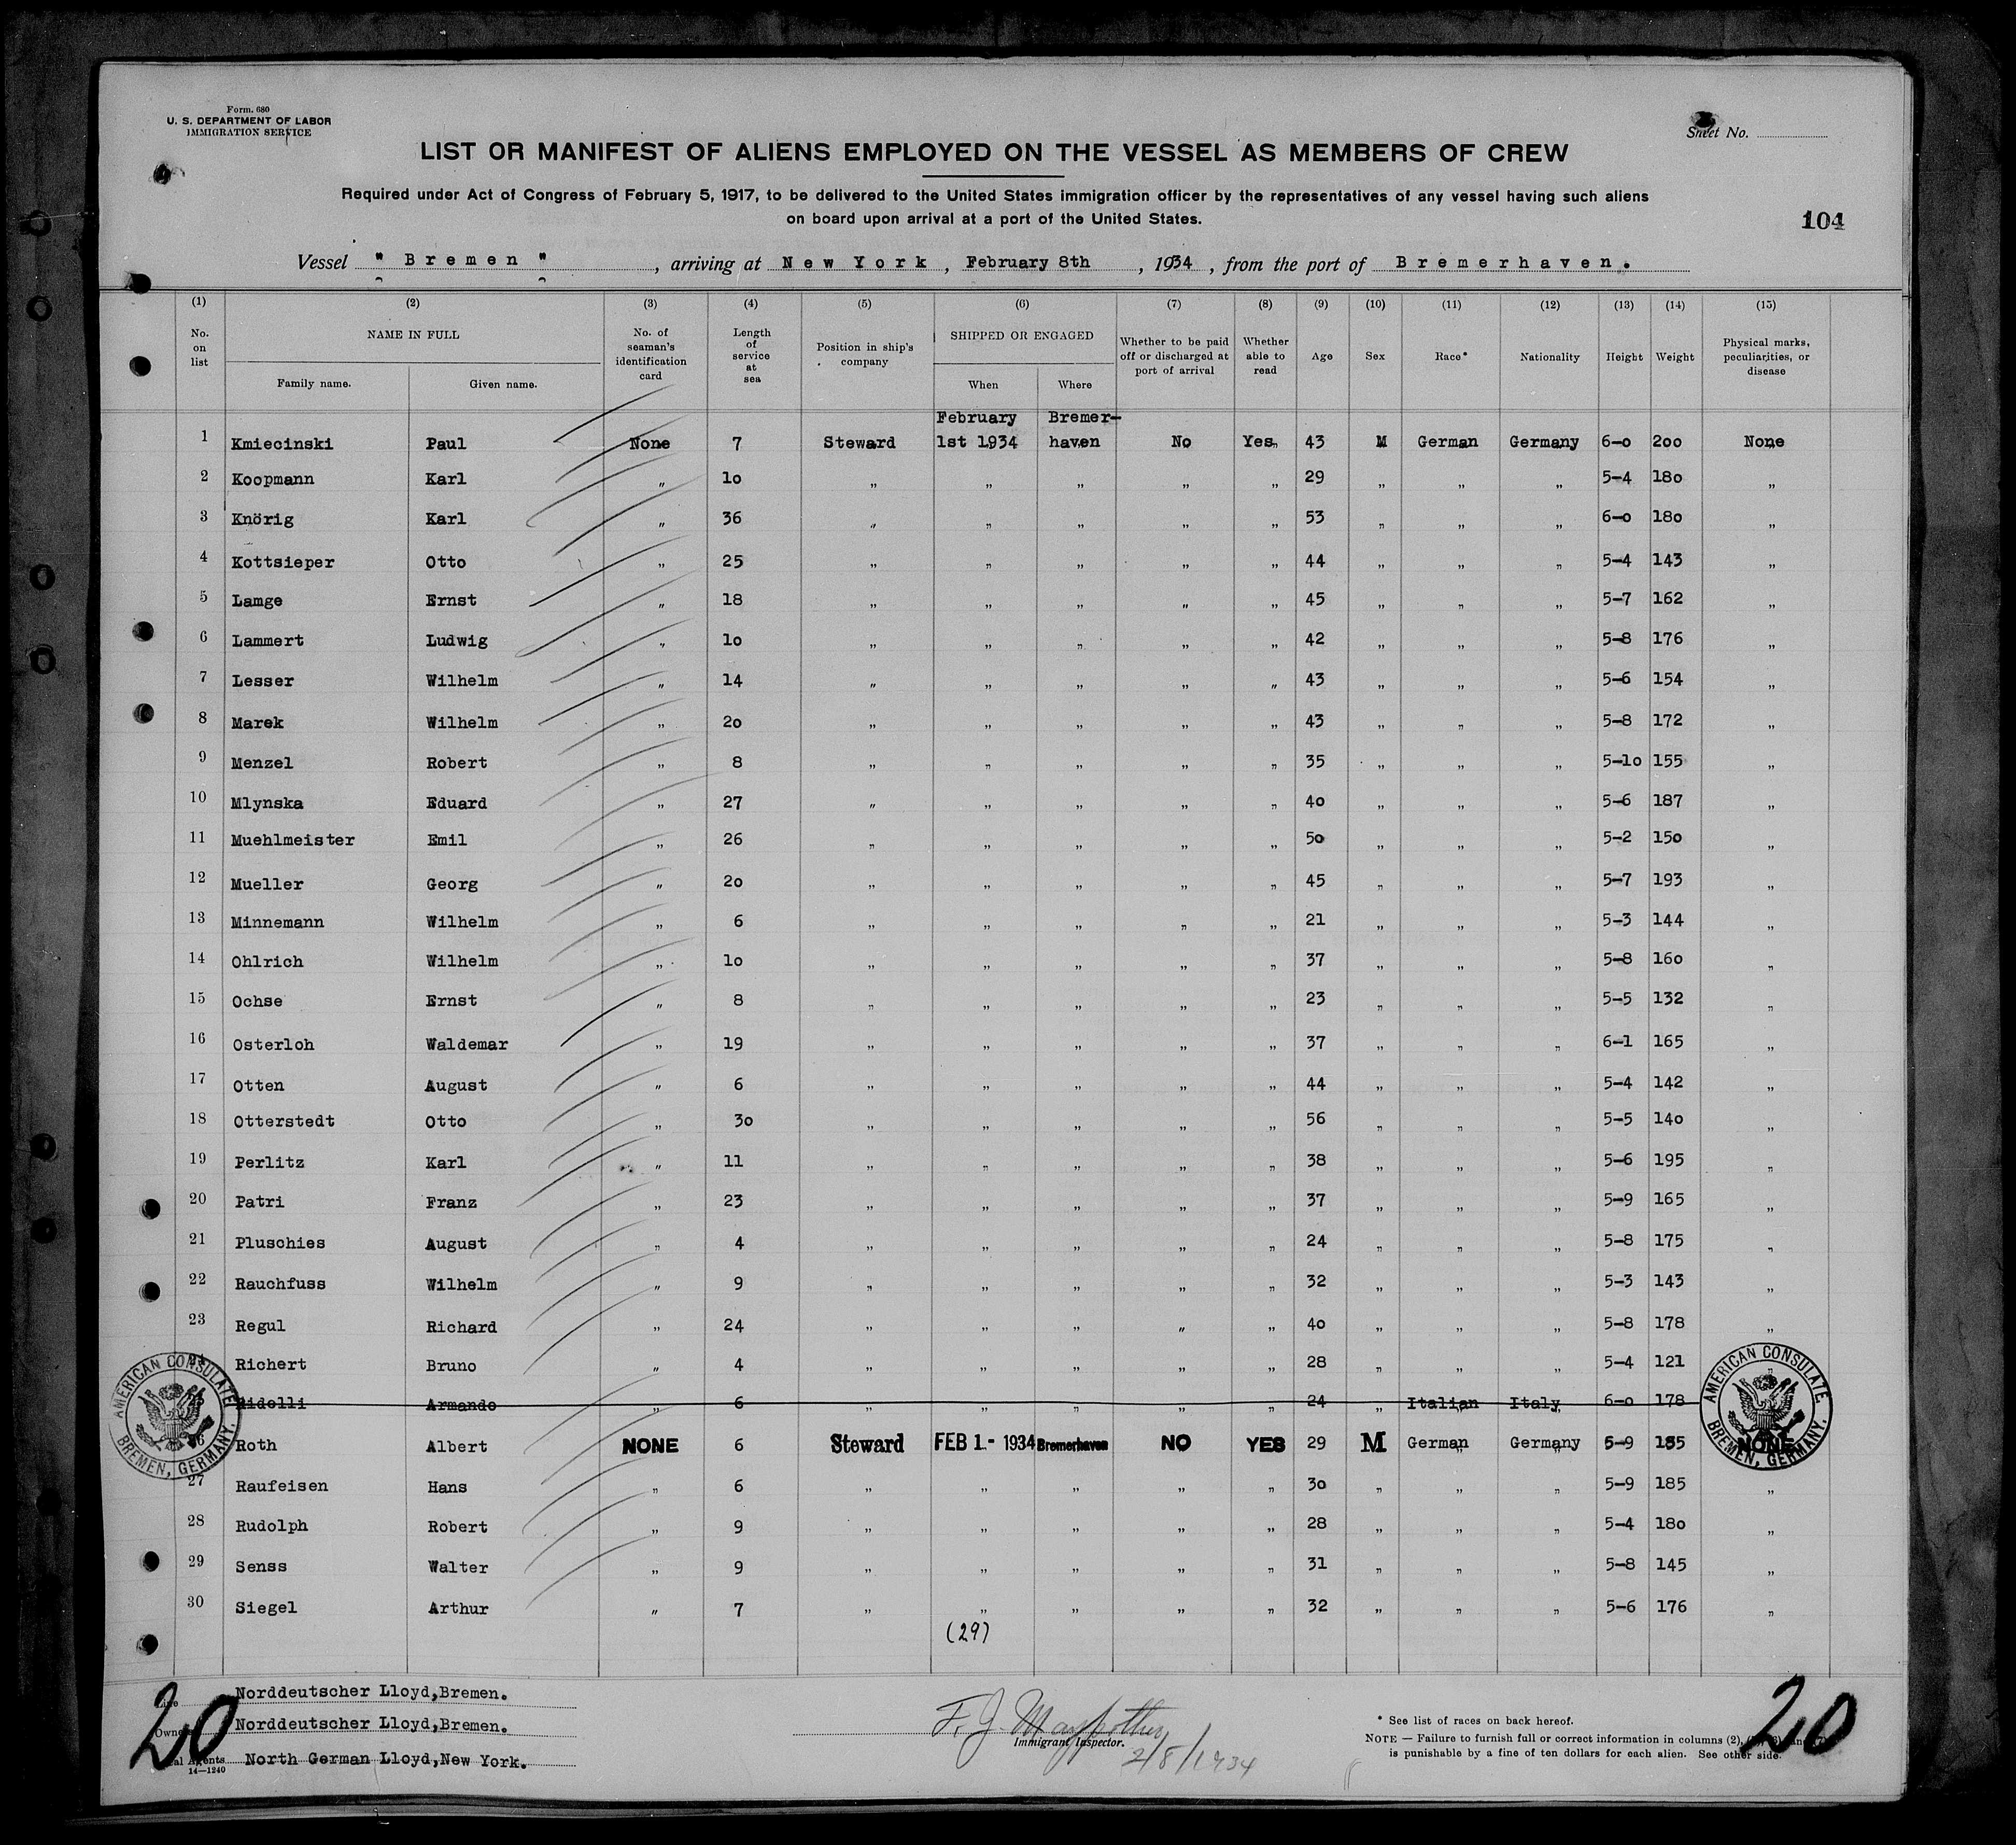 Form. 680
U. S. DEPARTMENT OF LABOR
IMMIGRATION SERVICE
Sheet No.
LIST OR MANIFEST OF ALIENS EMPLOYED ON THE VESSEL AS MEMBERS OF CREW
Required under Act of Congress of February 5, 1917, to be delivered to the United States immigration officer by the representatives of any vessel having such aliens
on board upon arrival at a port of the United States.
104
Vessel " Bremen " , arriving at New York , February 8th , 1934 , from the port of Bremerhaven.
(1) (2) (3) (4) (5) (6) (7) (8) (9) (10) (11) (12) (13) (14) (15)
No. on list NAME IN FULL Family name. Given name. No. of seaman's identification card Length of service at sea Position in ship's company SHIPPED OR ENGAGED When Where Whether to be paid off or discharged at port of arrival Whether able to read Age Sex Race* Nationality Height Weight Physical marks, peculiarities, or disease
February Bremer-
1 Kmiecinski Paul None 7 Steward 1st 1934 haven No Yes 43 M German Germany 6-0 200 None
2 Koopmann Karl " 10 " " " " " 29 " " " 5-4 180 "
3 Knörig Karl " 36 " " " " " 53 " " " 6-0 180 "
4 Kottsieper Otto " 25 " " " " " 44 " " " 5-4 143 "
5 Lamge Ernst " 18 " " " " " 45 " " " 5-7 162 "
6 Lammert Ludwig " 10 " " " " " 42 " " " 5-8 176 "
7 Lesser Wilhelm " 14 " " " " " 43 " " " 5-6 154 "
8 Marek Wilhelm " 20 " " " " " 43 " " " 5-8 172 "
9 Menzel Robert " 8 " " " " " 35 " " " 5-10 155 "
10 Mlynska Eduard " 27 " " " " " 40 " " " 5-6 187 "
11 Muehlmeister Emil " 26 " " " " " 50 " " " 5-2 150 "
12 Mueller Georg " 20 " " " " " 45 " " " 5-7 193 "
13 Minnemann Wilhelm " 6 " " " " " 21 " " " 5-3 144 "
14 Ohlrich Wilhelm " 10 " " " " " 37 " " " 5-8 160 "
15 Ochse Ernst " 8 " " " " " 23 " " " 5-5 132 "
16 Osterloh Waldemar " 19 " " " " " 37 " " " 6-1 165 "
17 Otten August " 6 " " " " " 44 " " " 5-4 142 "
18 Otterstedt Otto " 30 " " " " " 56 " " " 5-5 140 "
19 Perlitz Karl " 11 " " " " " 38 " " " 5-6 195 "
20 Patri Franz " 23 " " " " " 37 " " " 5-9 165 "
21 Pluschies August " 4 " " " " " 24 " " " 5-8 175 "
22 Rauchfuss Wilhelm " 9 " " " " " 32 " " " 5-3 143 "
23 Regul Richard " 24 " " " " " 40 " " " 5-8 178 "
Richert Bruno " 4 " " " " " 28 " " " 5-4 121 "
Ridolli Armando " 6 " " " " " 24 " Italian Italy 6-0 178
Roth Albert NONE 6 Steward FEB 1 - 1934 Bremerhaven NO YES 29 M German Germany 5-9 155 NONE
27 Raufeisen Hans " 6 " " " " " 30 " " " 5-9 185 "
28 Rudolph Robert " 9 " " " " " 28 " " " 5-4 180 "
29 Senss Walter " 9 " " " " " 31 " " " 5-8 145 "
30 Siegel Arthur " 7 " " " " " 32 " " " 5-6 176 "
(29)
AMERICAN CONSULATE, BREMEN, GERMANY.
AMERICAN CONSULATE, BREMEN, GERMANY.
Norddeutscher Lloyd,Bremen.
Owners Norddeutscher Lloyd,Bremen.
Agents North German Lloyd,New York.
14—1240
20
F. J.
Immigrant Inspector.
2/8/1934
* See list of races on back hereof.
NOTE — Failure to furnish full or correct information in columns (2),
is punishable by a fine of ten dollars for each alien. See other side.
20